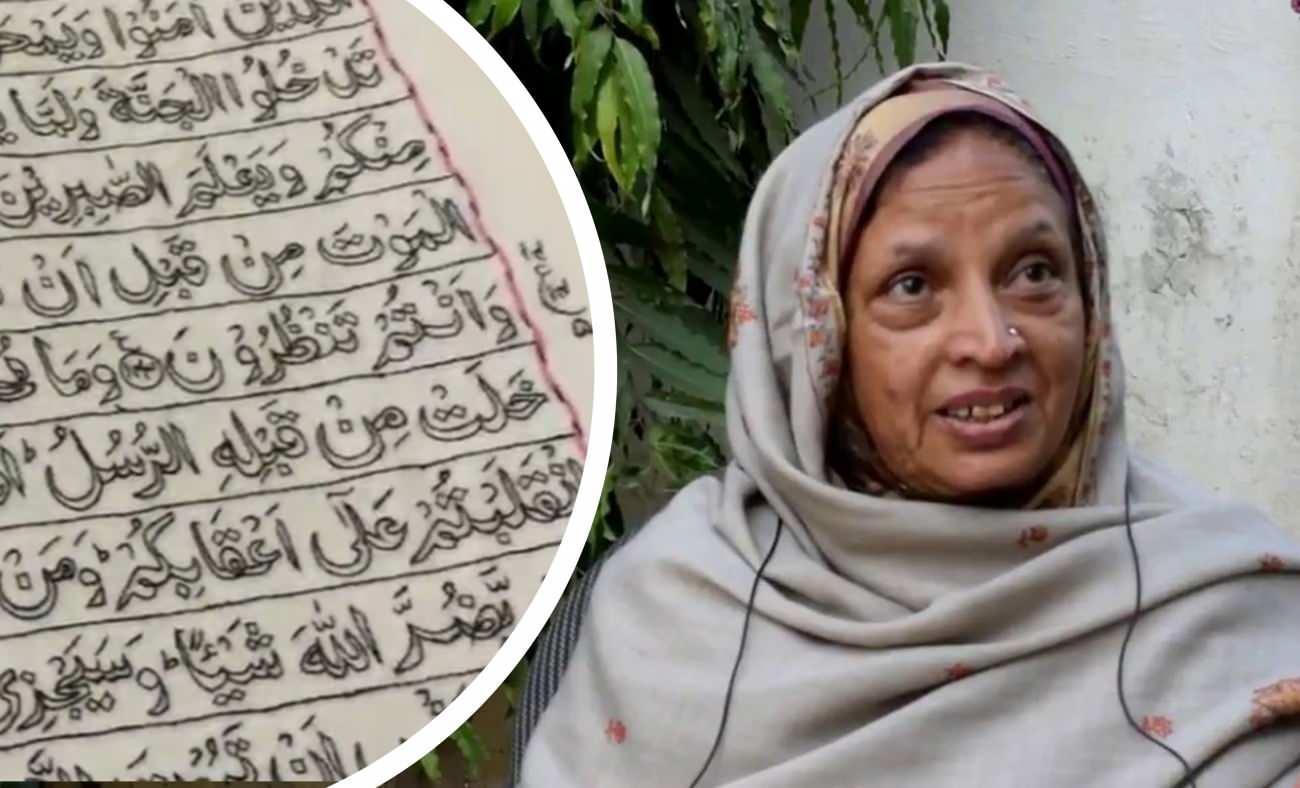 الَّذِيْنَ اٰمَنُوْا
تَدْخُلُوا الْجَنَّةَ وَلَمَّا
مِنْكُمْ وَيَعْلَمَ الصّٰبِرِيْنَ
الْمَوْتَ مِنْ قَبْلِ اَنْ
وَاَنْتُمْ تَنْظُرُوْنَ وَمَا
خَلَتْ مِنْ قَبْلِهِ الرُّسُلُ
انْقَلَبْتُمْ عَلٰٓى اَعْقَابِكُمْ وَمَنْ
يَّضُرَّ اللّٰهَ شَيْئًا وَسَيَجْزِي
اَنْ